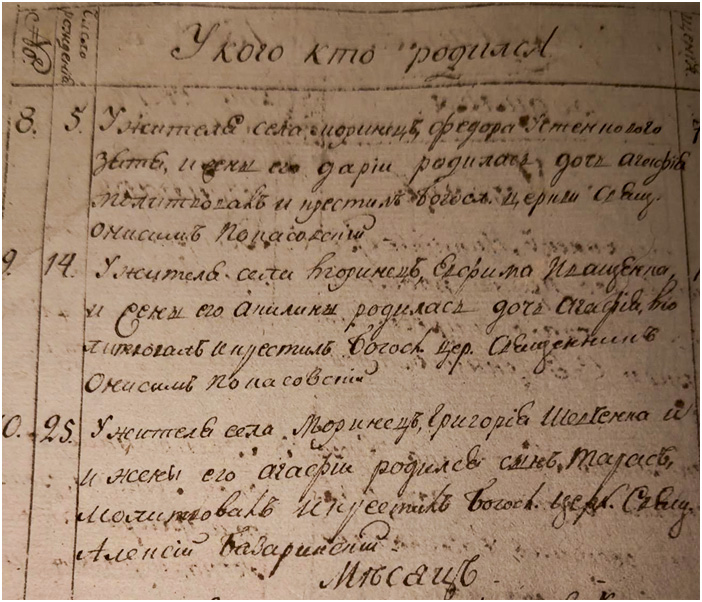 №
Число рожденiя
У кого кто родился
8. 5. У жителя села моринецъ, федора Устенкового
зятя, и жены его дарiи родилась дочь агафiя
молитвовалъ и крестилъ богосл. церкви Свящ.
Онисимъ Попасовскiй
9. 14. У жителя села моринецъ, Ефима Иващенка,
и жены его акилины родилась дочь агафiя, мо
литвовалъ и крестилъ богосл. цер. Священникъ
Онисимъ Попасовскiй
0. 25. У жителя села Моринецъ, Григорiя Шевченка и
и жены его агафiи родился сынъ Тарасъ,
молитвовалъ и крестилъ богосл. церк. Свящ.
Алексiй базаринскiй
Мѣсяцъ